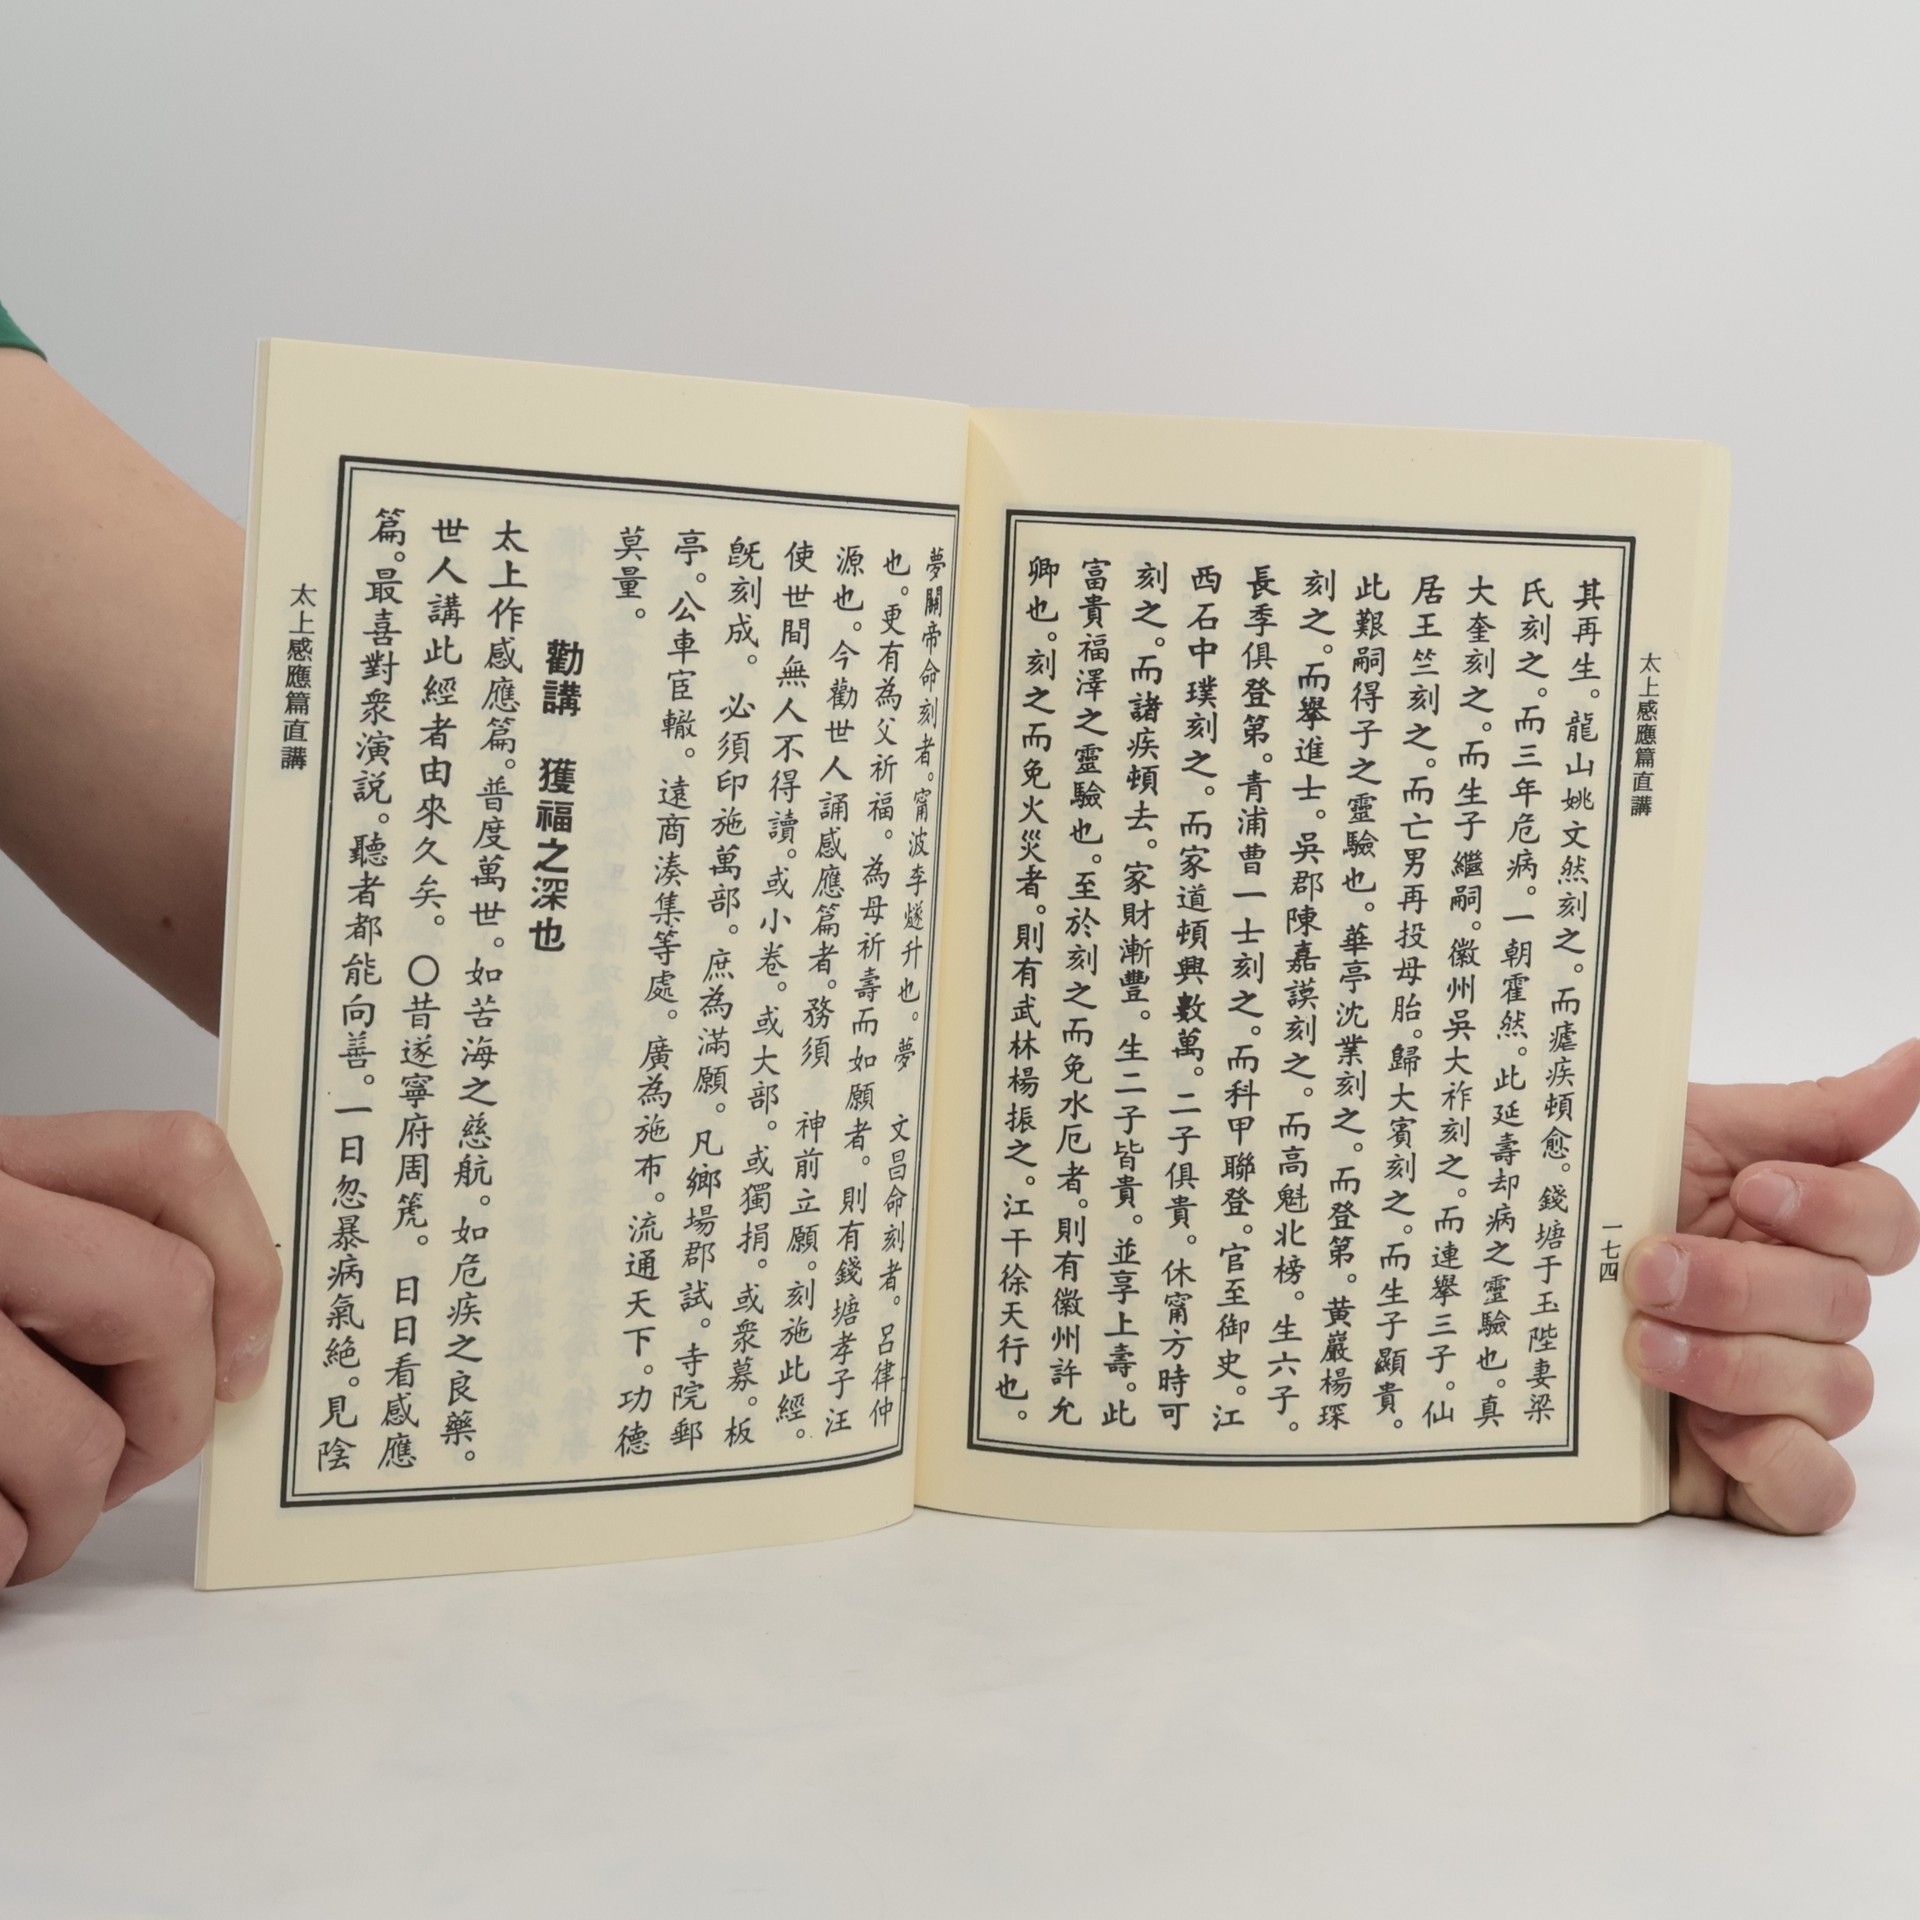 太上感應篇直講
一七四
其再生。龍山姚文然刻之。而瘧疾頓愈。錢塘于玉陛妻梁
氏刻之。而三年危病。一朝霍然。此延壽却病之靈驗也。真
大奎刻之。而生子繼嗣。徽州吳大祚刻之。而連舉三子。仙
居王竺刻之。而亡男再投母胎。歸大賓刻之。而生子顯貴。
此艱嗣得子之靈驗也。華亭沈業刻之。而登第。黃巖楊琛
刻之。而舉進士。吳郡陳嘉謨刻之。而高魁北榜。生六子。
長季俱登第。青浦曹一士刻之。而科甲聯登。官至御史。江
西石中璞刻之。而家道頓興數萬。二子俱貴。休甯方時可
刻之。而諸疾頓去。家財漸豐。生二子皆貴。並享上壽。此
富貴福澤之靈驗也。至於刻之而免水厄者。則有徽州許允
卿也。刻之而免火災者。則有武林楊振之。江干徐天行也。
夢關帝命刻者。甯波李燧升也。夢 文昌命刻者。呂律仲
也。更有為父祈福。為母祈壽而如願者。則有錢塘孝子汪
源也。今勸世人誦感應篇者。務須 神前立願。刻施此經。
使世間無人不得讀。或小卷。或大部。或獨捐。或衆募。板
既刻成。必須印施萬部。庶為滿願。凡鄉場郡試。寺院郵
亭。公車宦轍。遠商湊集等處。廣為施布。流通天下。功德
莫量。
勸講 獲福之深也
太上作感應篇。普度萬世。如苦海之慈航。如危疾之良藥。
世人講此經者由來久矣。〇昔遂寧府周篪。日日看感應
篇。最喜對衆演説。聽者都能向善。一日忽暴病氣絶。見陰
太上感應篇直講